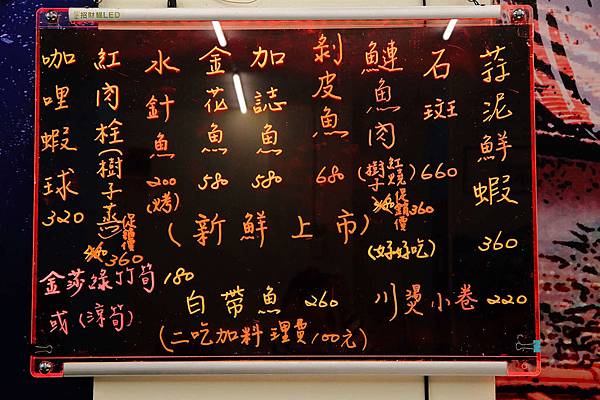 招財貓LED
蒜泥鮮蝦 360
石斑 660
鰱魚肉(紅燒 樹子)促銷價360
(好好吃)
剝皮魚 680
加誌魚 580
金花魚 580
水針魚 200 (烤)
紅肉栓(樹子蒸)促銷價360
咖哩蝦球 320
(新鮮上市)
金莎綠竹筍 180
或(涼筍)
白帶魚 260
川燙小卷 220
(二吃加料理費100元)